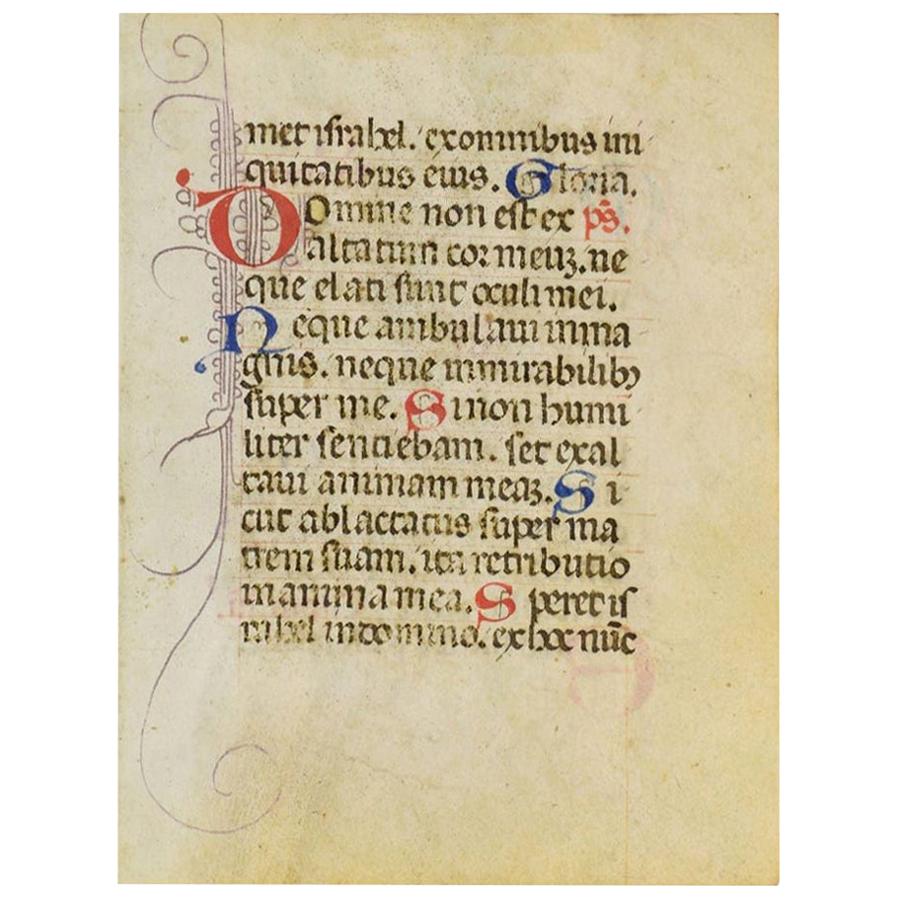 met israhel. ex omnibus ini
quitatibus eius. Gloria.
Domine non est ex ps.
altatum cor meuz. ne
que elati sunt oculi mei.
Neque ambulaui in ma
gnis. neque in mirabilibʒ
super me. Si non humi
liter sentiebam. set exal
taui animam meaz. Si
cut ablactatus super ma
trem suam. ita retributio
in anima mea. Speret is
rahel in domino. ex hoc nūc